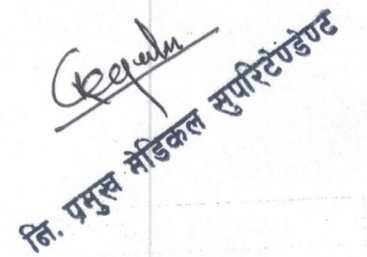 नि. प्रमुख मेडिकल सुपरिटेण्डेण्ट